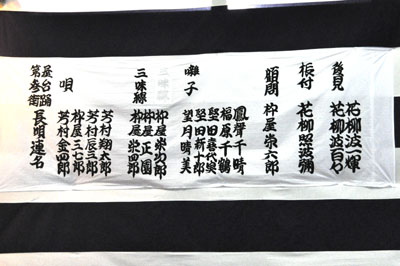 後見 花柳波一輝
振付 花柳照波彌
花柳波百々
顧問 杵屋崇六郎
囃子
鳳聲千晴
福原千鶴
堅田喜代実
堅田新十郎
望月晴美
三味線
杵屋正園
杵屋栄四郎
唄
芳村翔太郎
芳村辰三郎
杵屋三七郎
芳村金四郎
屋台踊
第参街
長唄連名